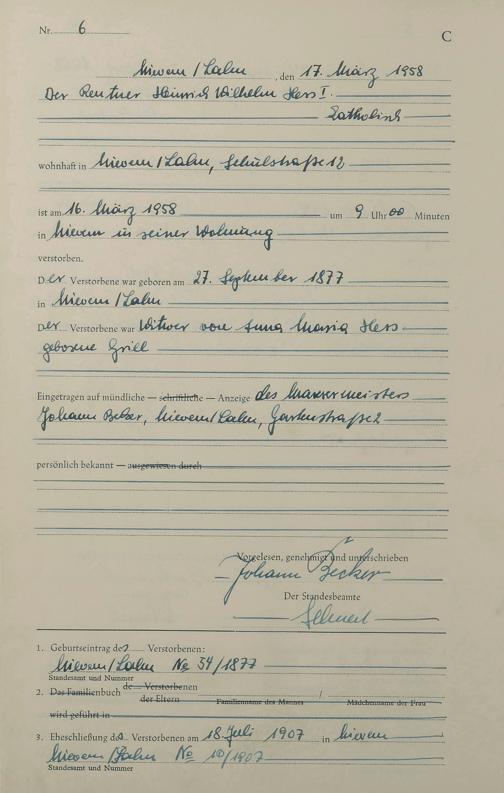 Nr. 6
C
Nievern/Lahn, den 17. März 1958
Der Rentner Heinrich Wilhelm Hess I.
katholisch
wohnhaft in Nievern/Lahn, Schulstraße 12
ist am 16. März 1958 um 9 Uhr 00 Minuten
in Nievern in seiner Wohnung
verstorben.
Der Verstorbene war geboren am 27. September 1877
in Nievern/Lahn
Der Verstorbene war Witwer von Anna Maria Hess
geborene Grill
Eingetragen auf mündliche — schriftliche — Anzeige des Maurermeisters
Johann Becker, Nievern/Lahn, Gartenstraße 2
persönlich bekannt — ausgewiesen durch
Vorgelesen, genehmigt und unterschrieben
Johann Becker
Der Standesbeamte
1. Geburtseintrag des Verstorbenen:
Nievern/Lahn No 54/1877
Standesamt und Nummer
2. Das Familienbuch de— Verstorbenen
der Eltern Familienname des Mannes / Mädchenname der Frau
wird geführt in
3. Eheschließung des Verstorbenen am 18. Juli 1907 in Nievern
Nievern/Lahn No 10/1907
Standesamt und Nummer